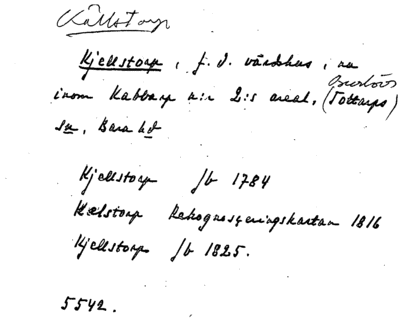 Källstorp
Kjellstorp, f. d. värdshus, nu
Burlövs
inom Kabbarp n:r 2:s areal, (Tottarps)
sn, Bara hd
Kjellstorp Jb 1784
Kælstorp Rekognosceringskartan 1816
Kjellstorp Jb 1825.
5542.